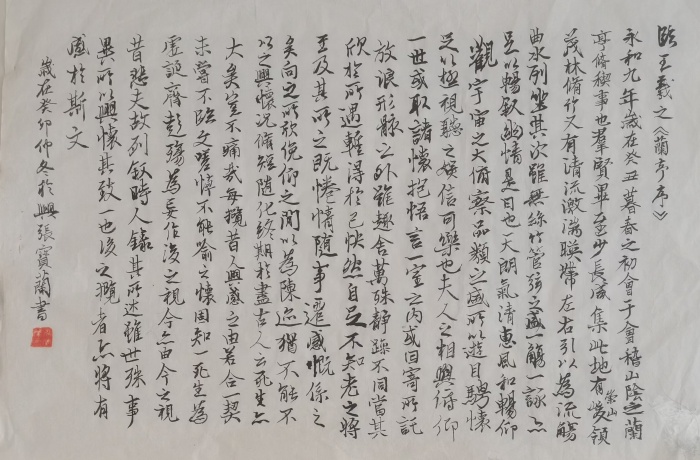 臨王羲之《蘭亭序》
永和九年歲在癸丑暮春之初會于會稽山陰之蘭
亭脩稧事也羣賢畢至少長咸集此地有崇山峻領
茂林脩竹又有清流激湍暎帶左右引以為流觴
曲水列坐其次雖無絲竹管弦之盛一觴一詠亦
足以暢敘幽情是日也天朗氣清惠風和暢仰
觀宇宙之大俯察品類之盛所以遊目騁懷
足以極視聽之娛信可樂也夫人之相與俯仰
一世或取諸懷抱悟言一室之內或因寄所託
放浪形骸之外雖趣舍萬殊靜躁不同當其
欣於所遇輒得於己快然自足不知老之將
至及其所之既惓情隨事遷感慨係之
矣向之所欣俛仰之閒以為陳迹猶不能不
以之興懷況脩短隨化終期於盡古人云死生亦
大矣豈不痛哉每攬昔人興感之由若合一契
未嘗不臨文嗟悼不能喻之懷固知一死生為
虛誕齊彭殤為妄作後之視今亦由今之視
昔悲夫故列敘時人錄其所述雖世殊事
異所以興懷其致一也後之攬者亦將有
感於斯文
歲在癸卯仲冬於興張寶蘭書